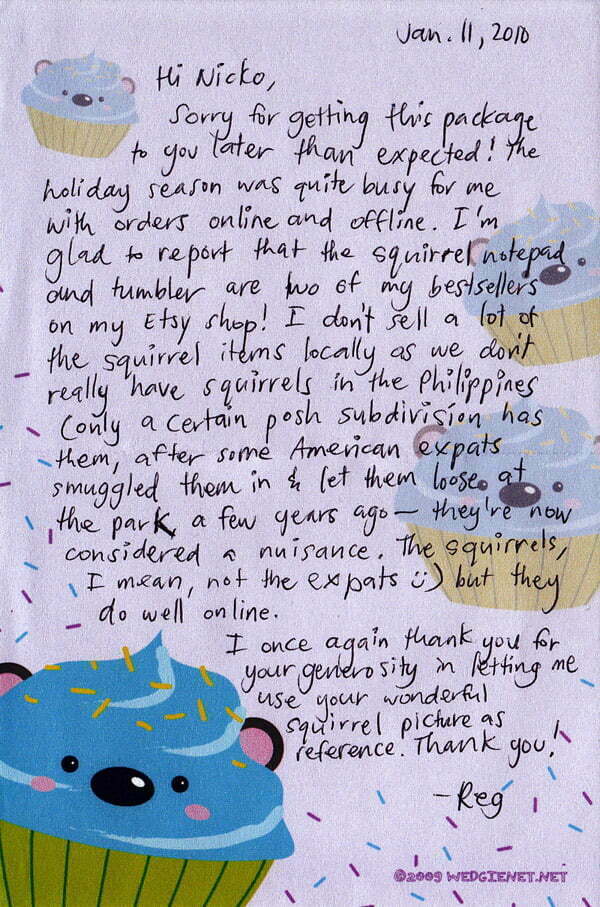 Jan. 11, 2010
Hi Nicko,
Sorry for getting this package
to you later than expected! The
holiday season was quite busy for me
with orders online and offline. I'm
glad to report that the squirrel notepad
and tumbler are two of my bestsellers
on my Etsy shop! I don't sell a lot of
the squirrel items locally as we don't
really have squirrels in the Philippines
(only a certain posh subdivision has
them, after some American expats
smuggled them in & let them loose at
the park a few years ago — they're now
considered a nuisance. The squirrels,
I mean, not the expats :)) but they
do well online.
I once again thank you for
your generosity in letting me
use your wonderful
squirrel picture as
reference. Thank you!
-Reg
©2009 WEDGIENET.NET